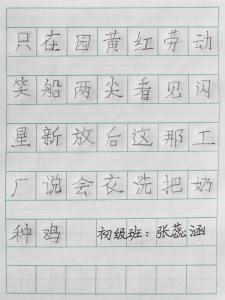 只在园黄红劳动
笑船两尖看见闪
星新放后这那工
厂说会衣洗把奶
种鸡 初级班：张蕊涵